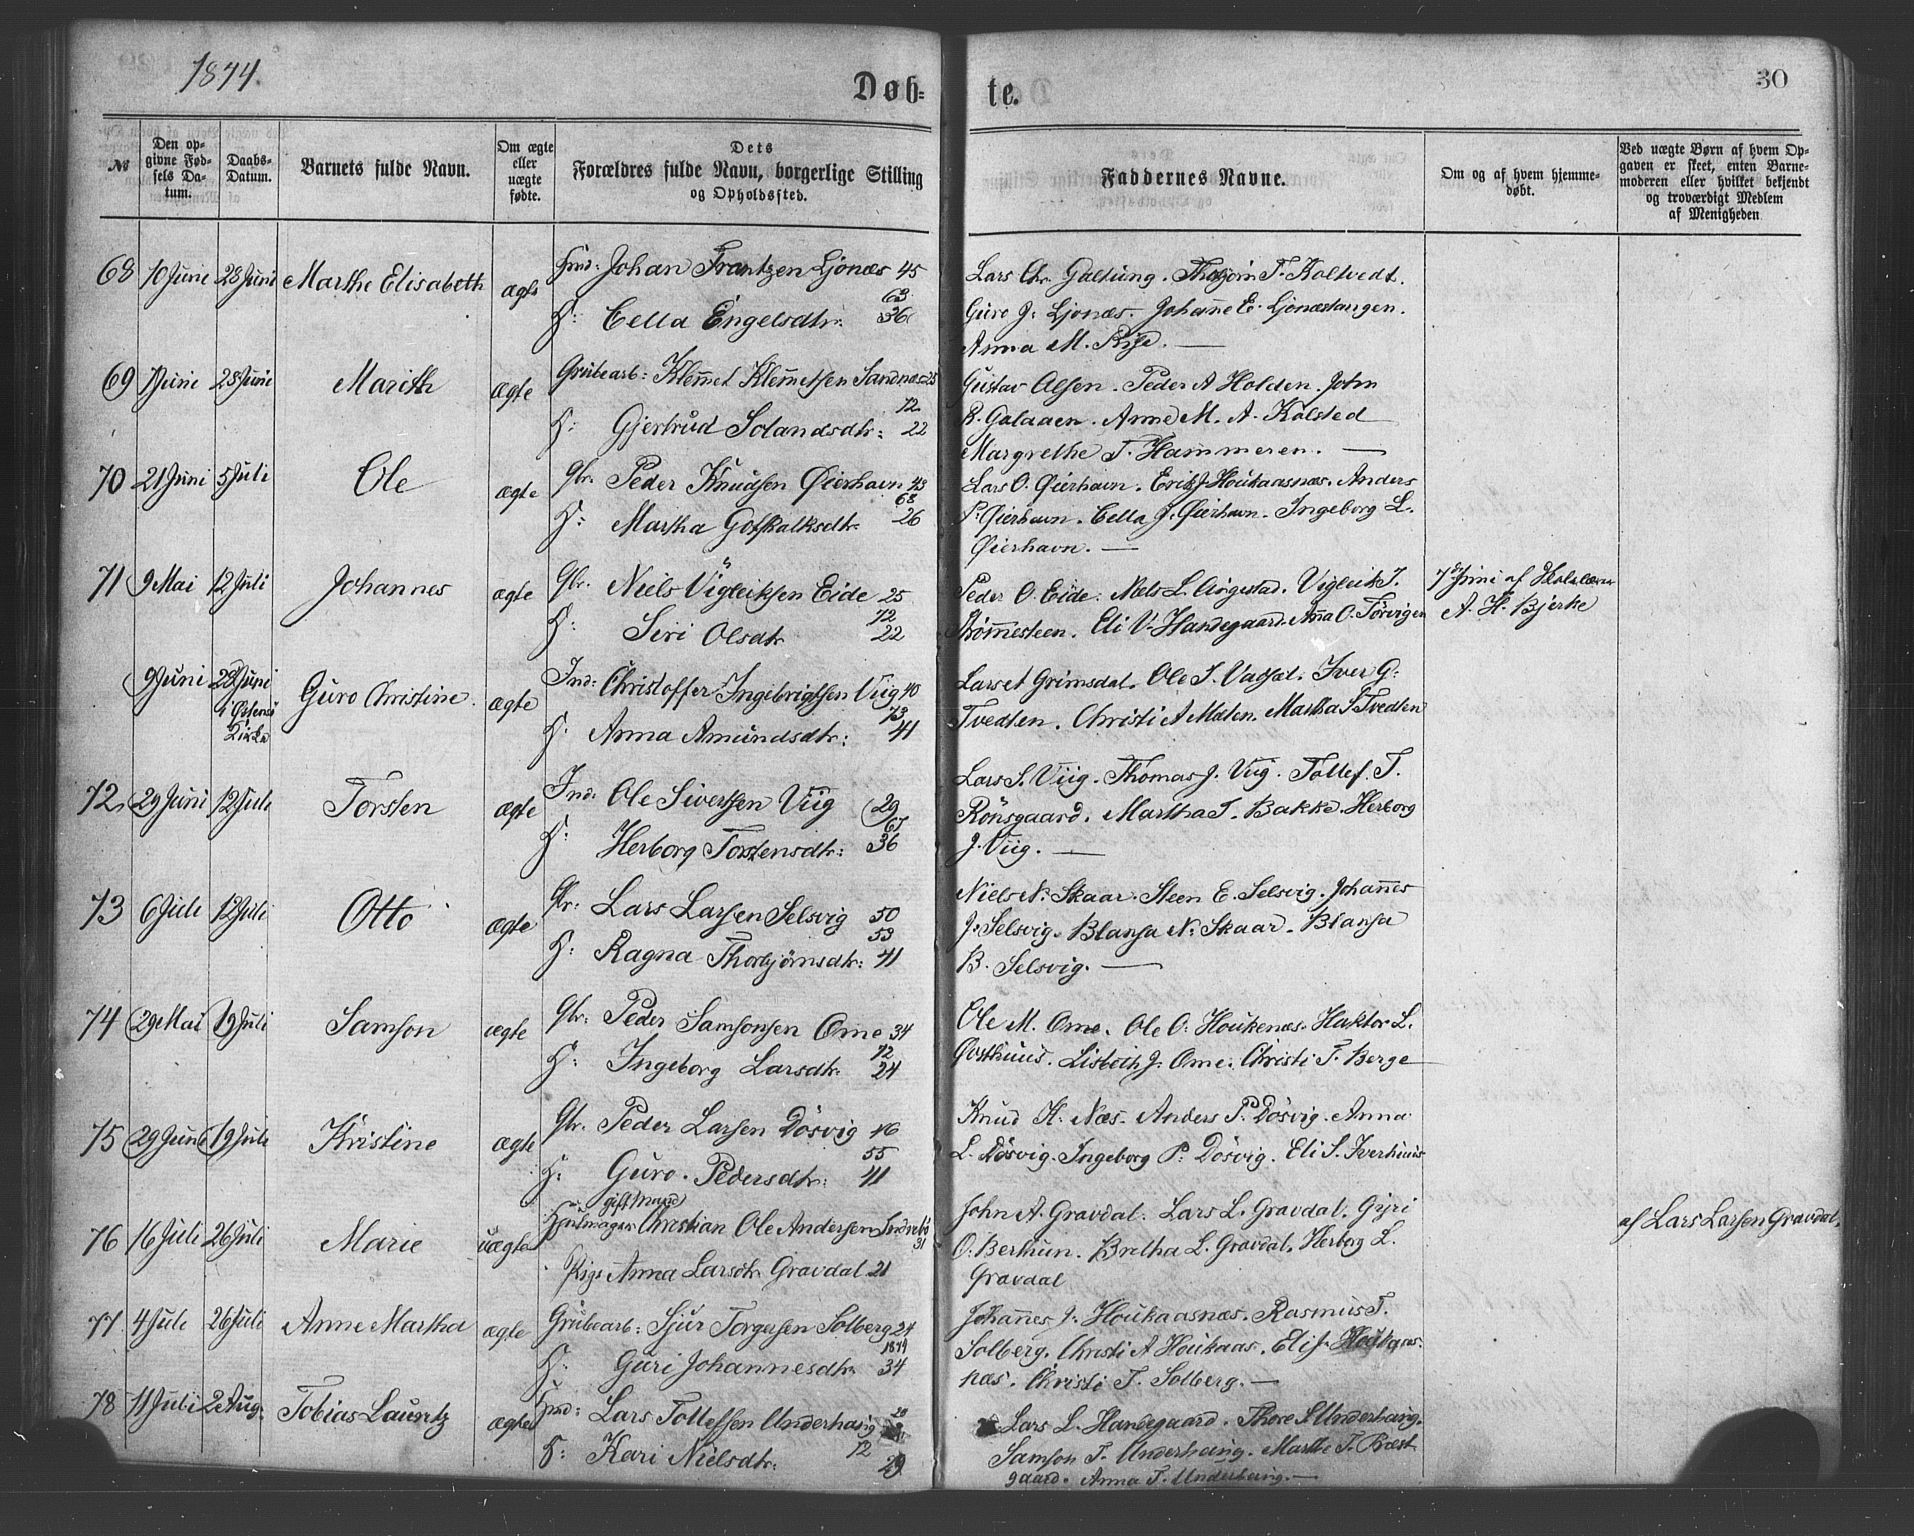 1874.
Døb=
te.
30
№
Den op-
givne Fød-
sels Da-
tum.
Daabs-
Datum.
Barnets fulde Navn.
Om ægte
eller
uægte
fødte.
Dets
Forældres fulde Navn, borgerlige Stilling
og Opholdssted.
Faddernes Navne.
Om og af hvem hjemme-
døbt.
Ved uægte Børn af hvem Op-
gaven er skeet, enten Barne-
moderen eller hvilket bekjendt
og troværdigt Medlem
af Menigheden
68 10 Juni 28 Juni Marthe Elisabeth ægte Johan Frantzen Ljonæs 45
63
H: Cella Engelsdtr: 36
Lars Chr. Galtung. Thorbjørn T. Koltvedt.
Guro J. Ljonæs. Johanne E. Ljonæstangen.
Anna M. Rije. —
69 1 Juni 28 Juni Marith ægte Grubearb: Klemet Klemetsen Sandnæs 25
72
H: Gjertrud Solandsdtr: 22
Gustav Olsen. Peder A Holden. John
R. Galaaen. Anne M. A. Kolsted
Margrethe T. Hammeren. —
70 21 Juni 5 Juli Ole ægte Gbr. Peder Knudsen Øierhavn 43
68
H: Martha Gotskalksdtr. 26
Lars O. Øierhavn. Erik J. Houkaasnæs. Anders
P. Øierhavn. Cella J. Øierhavn. Ingeborg L.
Øierhavn. —
71 9 Mai 12 Juli Johannes ægte Gbr. Niels Vigleiksen Eide 25
72
H: Siri Olsdtr 22
Peder O. Eide. Nels L. Augestad. Vigleik T.
Strømmesteen. Eli V. Handegaard. Anna O. Torvigen
7de Juni af Skolelærer
A. H. Bjerke
9 Juni 28 Juni
i Østensø
Kirke
Guro Christine ægte Ind: Christoffer Ingebrigtsen Viig 40
73
H. Anna Amundsdtr: 41
Lars et Grimsdal. Ole S. Vatsel. Iver G.
Tvedten. Christi A Malen. Martha S Tvedten
72 29 Juni 12 Juli Torsten ægte Ind: Ole Sivertsen Viig 29
67
H: Herborg Torstensdtr: 36
Lars S. Viig. Thomas J. Viig. Tollef. T.
Rönsgaard. Martha T. Bakke. Herborg
J. Viig. —
73 6 Juli 12 Juli Otto ægte Gbr: Lars Larsen Selsvig 50
53
H: Ragna Thorbjørnsdtr: 41
Niels N. Skaar. Steen E. Selsvig. Johannes
J. Selsvig. Blansa N. Skaar. Blansa
B. Selsvig. —
74 29 Mai 19 Juli Samson ægte Gbr: Peder Samsonsen Ome 34
72
H: Ingeborg Larsdtr. 24
Ole M. Ome. Ole O. Houkenæs. Haktor L.
Østhuus. Lisbeth J. Ome. Christi T. Berge
75 29 Juni 19 Juli Kristine ægte Gbr. Peder Larsen Dösvig 46
55
H: Guro Pedersdtr: 41
Knud H. Næs. Anders P. Dösvig. Anna
L. Dösvig. Ingeborg P. Dösvig. Eli S. Iverhuus
76 16 Juli 26 Juli Marie uægte gift Mand
Hjulmager Christian Ole Andersen Sndvebö
31
Pige Anna Larsdtr Gravdal 21
John A. Gravdal. Lars L. Gravdal. Gyri
O. Berhun. Bretha L. Gravdal. Herborg L.
Gravdal
af Lars Larsen Gravdal.
77 4 Juli 26 Juli Anne Martha ægte Grubearb: Sjur Torgersen Solberg 24
H: Guri Johannesdtr 34
Johannes J. Houkaasnæs. Rasmus T.
Solberg. Christi A Houkaas. Eli J. Houkaas-
næs. Christi T. Solberg. —
78 11 Juli 2 Aug. Tobias Lauritz ægte Lars Tollefsen Underhaug
72
H: Kari Nielsdtr. 29
Lars L. Handegaard. Thore S Underhaug.
Samson T. Underhaug. Marthe T. Præst
gaard. Anna T. Underhaug. —